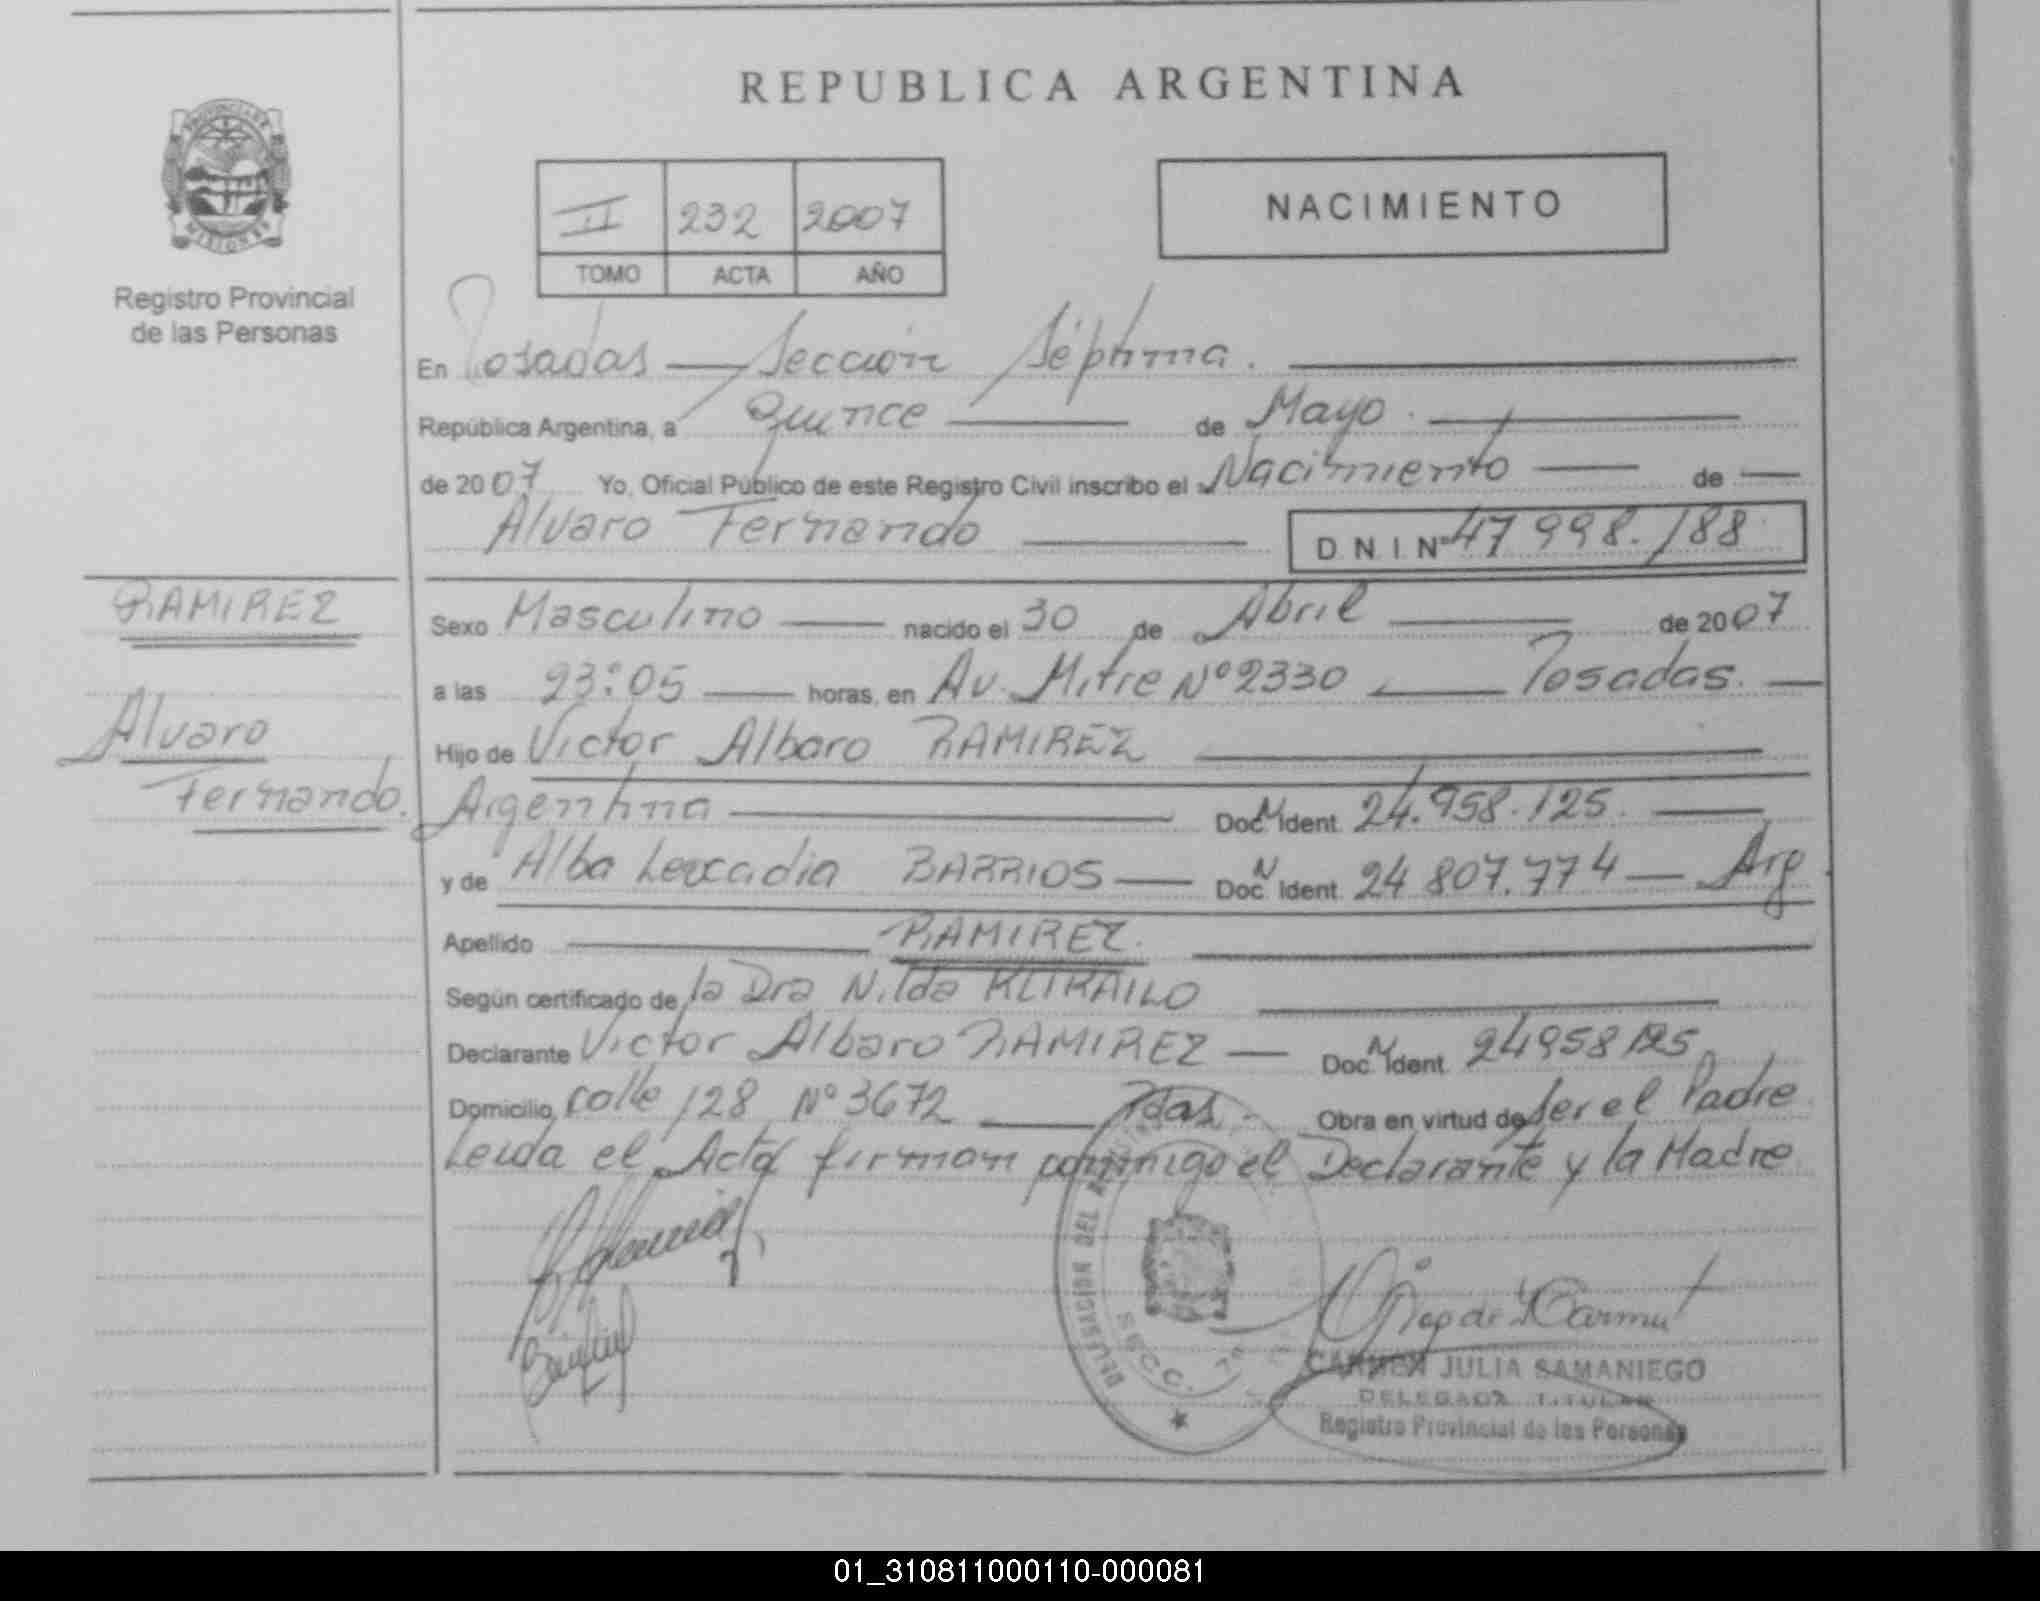 REPUBLICA ARGENTINA
PROVINCIA DE
MISIONES
Registro Provincial
de las Personas
II 232 2007
TOMO ACTA AÑO
NACIMIENTO
En Posadas — Sección Séptima.
República Argentina, a Quince de Mayo.
de 2007 Yo, Oficial Público de este Registro Civil inscribo el Nacimiento de
Alvaro Fernando
D N I Nº 47 998.188
RAMIREZ
Alvaro
Fernando.
Sexo Masculino nacido el 30 de Abril de 2007
a las 23:05 horas, en Av. Mitre Nº 2330 — Posadas.
Hijo de Victor Albaro RAMIREZ
Argentina Doc. N Ident. 24.958.125.
y de Alba Leocadia BARRIOS — Doc. N Ident. 24 807.774 — Arg.
Apellido RAMIREZ.
Según certificado de la Dra Nilda
Declarante Victor Albaro RAMIREZ — Doc. N Ident. 24958125.
Domicilio calle 128 Nº 3672 Pdas. Obra en virtud de ser el Padre
Leida el Acta firman conmigo el Declarante y la Madre
DELEGACION DEL
SECC. 7a
CARMEN JULIA SAMANIEGO
DELEGADA TITULAR
Registro Provincial de las Personas
01_310811000110-000081